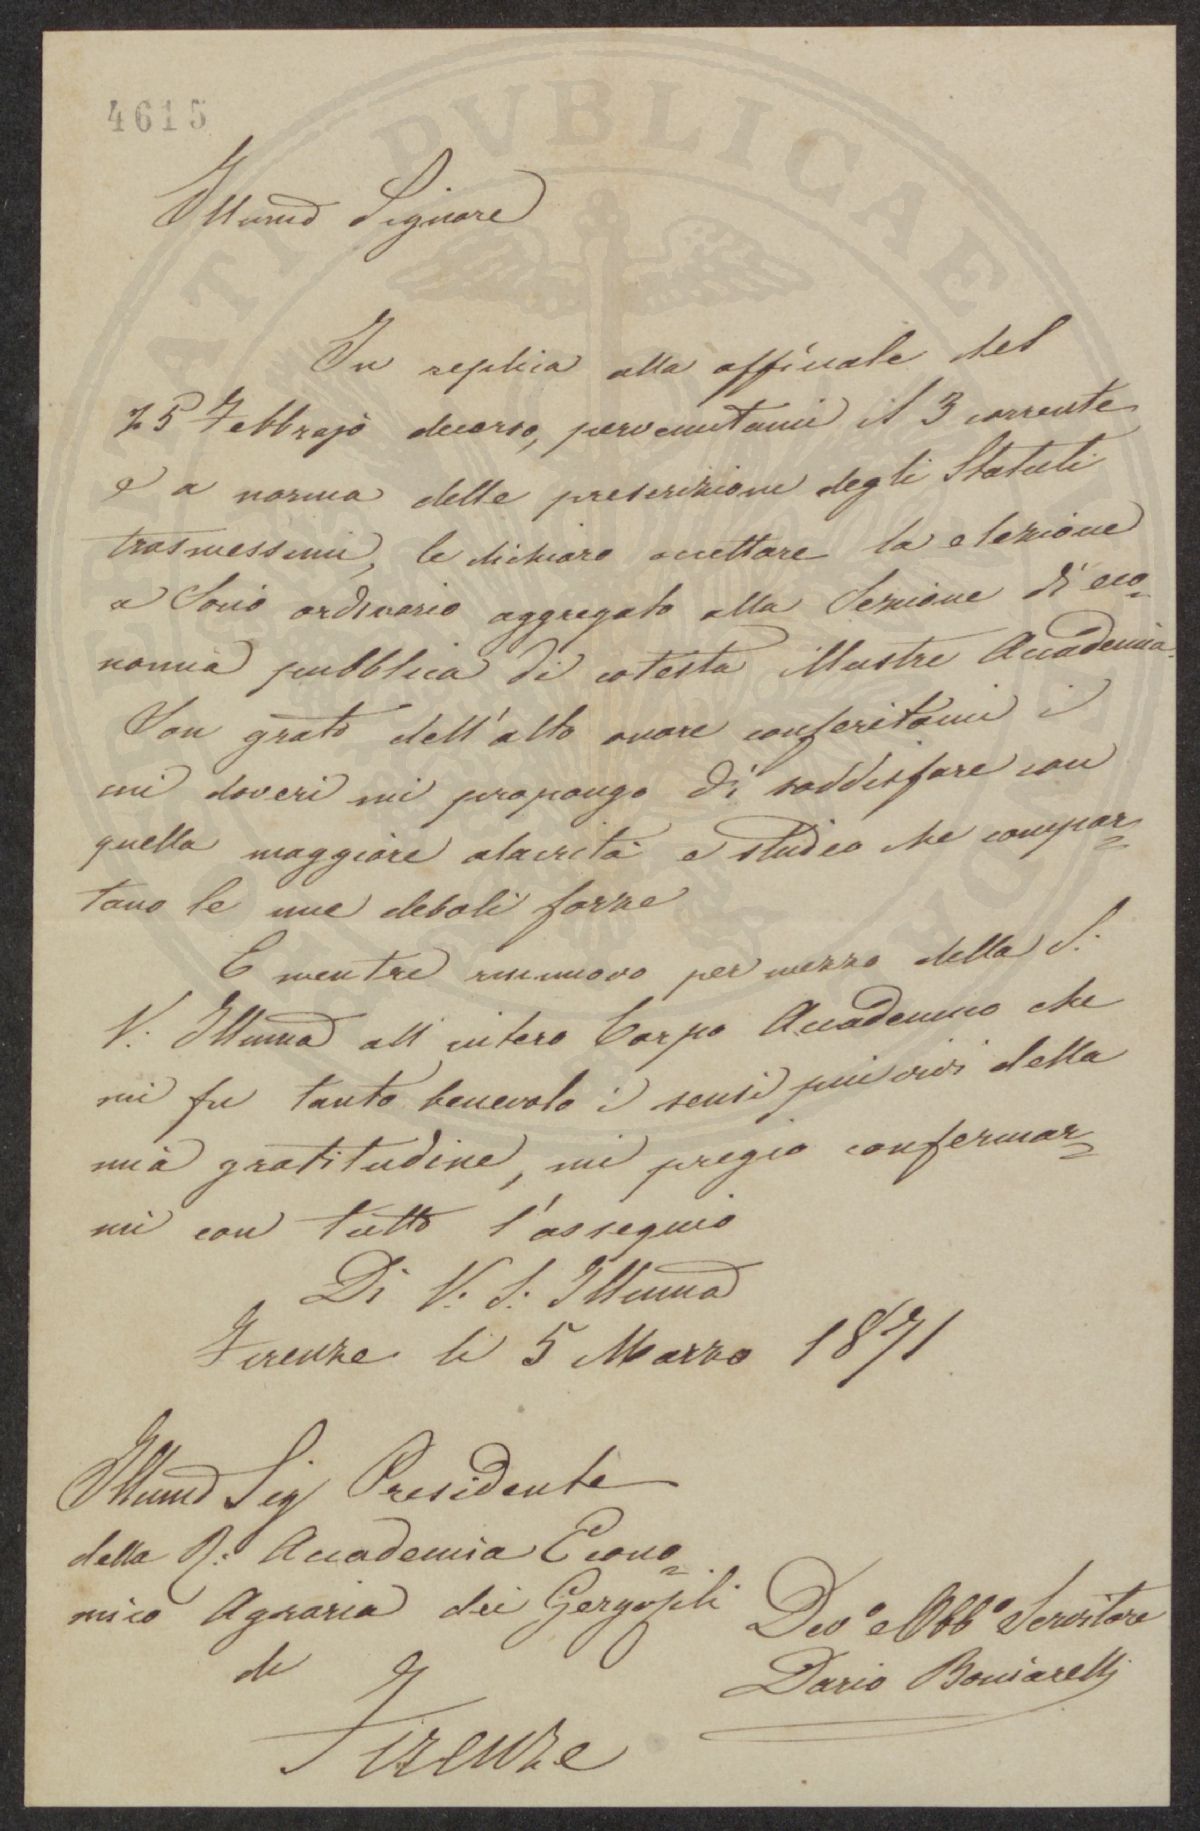 4615
PVBLICAE
Illumo Signore
In replica alla officiale del
25 Febbrajo decorso, pervenutami il 3 corrente
e a norma delle prescrizioni degli Statuti
trasmessimi, le dichiaro accettare la elezione
a Socio ordinario aggregato alla Sezione di eco=
nomia pubblica di cotesta illustre Accademia.
Son grato dell'alto onore conferitomi i
mi doveri mi propongo di soddisfare con
quella maggiore alacrità e studio che compor=
tano le mie deboli forze
E mentre rinnuovo per mezzo della S:
V: Illuma all intero Corpo Accademico che
mi fu tanto benevolo i sensi più vivi della
mia gratitudine, mi pregio confermar=
mi con tutto l'ossequio
Di V: S: Illuma
Firenze li 5 Marzo 1871
Illumo Sig Presidente
della R: Accademia Econo=
mico Agraria dei Gergofili
di
Firenze
Devo e Obbo Servitore
Dario